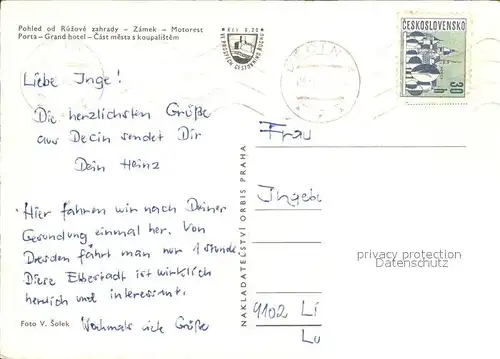 Pohled od Růžové zahrady – Zámek – Motorest
Porta – Grand hotel – Část města s koupalištěm
ČESKOSLOVENSKO
30
h
DĚČÍN
Liebe Inge!
Die herzlichsten Grüße
aus Decin sendet Dir
Dein Heinz
Hier fahren wir nach Deiner
Gesundung einmal her. Von
Dresden fährt man nur 1 Stunde
Diese Elbestadt ist wirklich
herrlich und interessant.
Nochmals viele Grüße
Foto V. Šolek
NAKLADATELSTVÍ ORBIS PRAHA
Frau
Ingeb
9102 Li
Lu
privacy protection
Datenschutz